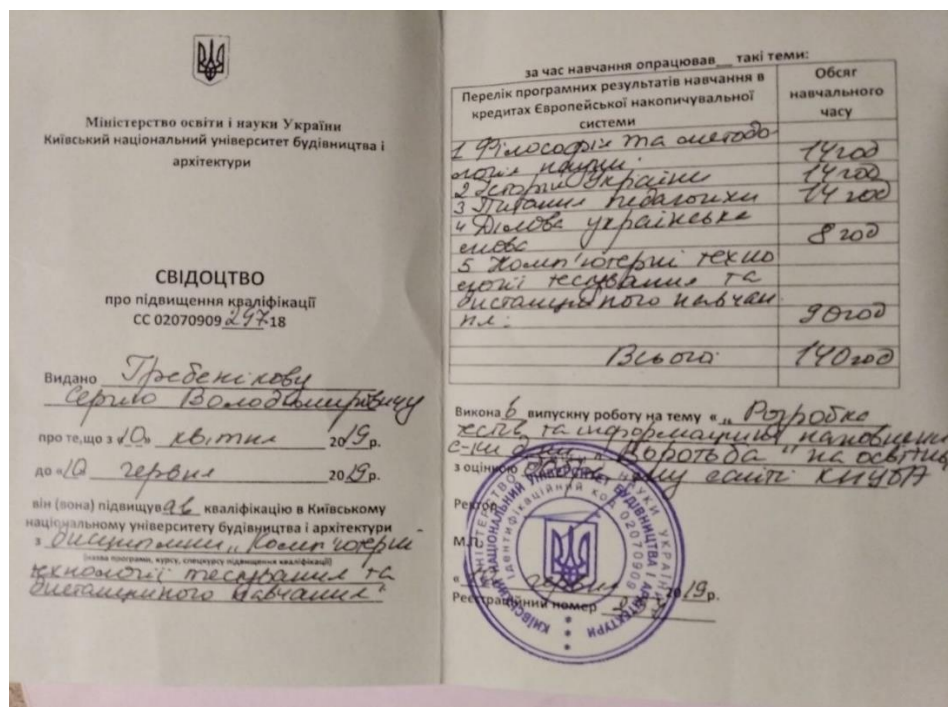 Міністерство освіти і науки України
Київський національний університет будівництва і
архітектури
СВІДОЦТВО
про підвищення кваліфікації
СС 02070909 297-18
Видано Гребенікову
Сергію Володимировичу
про те,що з «10» квітня 2019р.
до «10 червня 2019р.
він (вона) підвищував кваліфікацію в Київському
національному університету будівництва і архітектури
з дисципліни „Комп'ютерні
(назва програми, курсу, спецкурсу підвищення кваліфікації)
технології тестування та
дистанційного навчання"
за час навчання опрацював__ такі теми:
Перелік програмних результатів навчання в
кредитах Європейської накопичувальної
системи
Обсяг
навчального
часу
1 Філософія та методо
логія науки.
14год
2 Історія України
14год
3 Питання педагогіки
14 год
4 Ділова українська
мова
8 год
5 Комп'ютерні техно
логії тестування та
дистанційного навчан-
ня:
90год
Всього
140год
Виконав випускну роботу на тему « „ Розробка
тестів та інформаційне наповнення
с-ки дисц. „Боротьба" на освітнь
з оцінкою ому сайті КНУБА
Ректор
М.П.
« червня 2019р.
Реєстраційний номер
МІНІСТЕРСТВО НАУКИ УКРАЇНИ
КИЇВСЬКИЙ НАЦІОНАЛЬНИЙ УНІВЕРСИТЕТ БУДІВНИЦТВА І АРХІТЕКТУРИ
Ідентифікаційний код 02070909